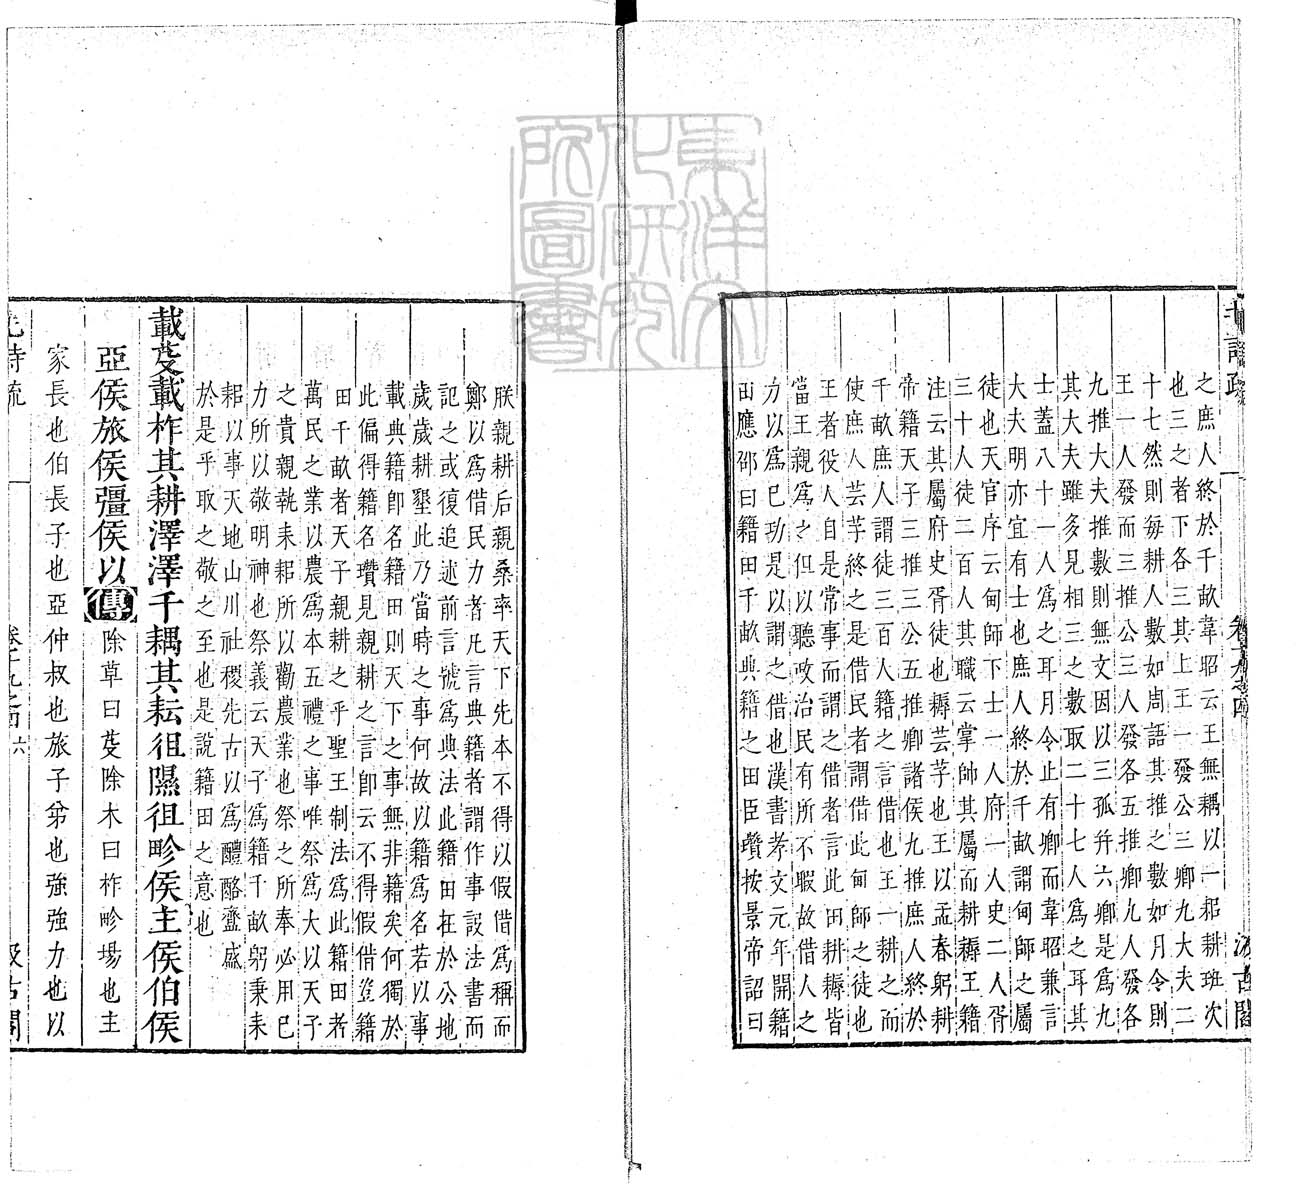 毛詩疏 卷十九之四 汲古閣
之庶人終於千畝韋昭云王無耦以一耜耕班次
也三之者下各三其上王一發公三卿九大夫二
十七然則每耕人數如周語其推之數如月令則
王一人發而三推公三人發各五推卿九人發各
九推大夫推數則無文因以三孤并六卿是爲九
其大夫雖多見相三之數取二十七人爲之耳其
士蓋八十一人爲之耳月令止有卿而韋昭兼言
大夫明亦宜有士也庶人終於千畝謂甸師之屬
徒也天官序云甸師下士一人府一人史二人胥
三十人徒二百人其職云掌帥其屬而耕耨王籍
注云其屬府史胥徒也耨芸芓也王以孟春躬耕
帝籍天子三推三公五推卿諸侯九推庶人終於
千畝庶人謂徒三百人籍之言借也王一耕之而
使庶人芸芓終之是借民者謂借此甸師之徒也
王者役人自是常事而謂之借者言此田耕耨皆
當王親爲之但以聽政治民有所不暇故借人之
力以爲已功是以謂之借也漢書孝文元年開籍
田應邵曰籍田千畝典籍之田臣瓚按景帝詔曰
朕親耕后親桑率天下先本不得以假借爲稱而
鄭以爲借民力者凡言典籍者謂作事設法書而
記之或復追述前言號爲典法此籍田在於公地
歲歲耕墾此乃當時之事何故以籍爲名若以事
載典籍卽名籍田則天下之事無非籍矣何獨於
此偏得籍名瓚見親耕之言卽云不得假借豈籍
田千畝者天子親耕之乎聖王制法爲此籍田者
萬民之業以農爲本五禮之事唯祭爲大以天子
之貴親執耒耜所以勸農業也祭之所奉必用已
力所以敬明神也祭義云天子爲籍千畝躬秉耒
耜以事天地山川社稷先古以爲醴酪齍盛
於是乎取之敬之至也是說籍田之意也
載芟載柞其耕澤澤千耦其耘徂隰徂畛侯主侯伯侯
亞侯旅侯彊侯以傳除草曰芟除木曰柞畛場也主
家長也伯長子也亞仲叔也旅子弟也強強力也以
毛詩疏 卷十九之四 六 汲古閣
東洋文化研究所圖書